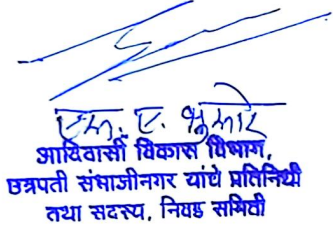 एम. ए. भुमरे
आदिवासी विकास विभाग,
छत्रपती संभाजीनगर यांचे प्रतिनिधी
तथा सदस्य, निवड समिती